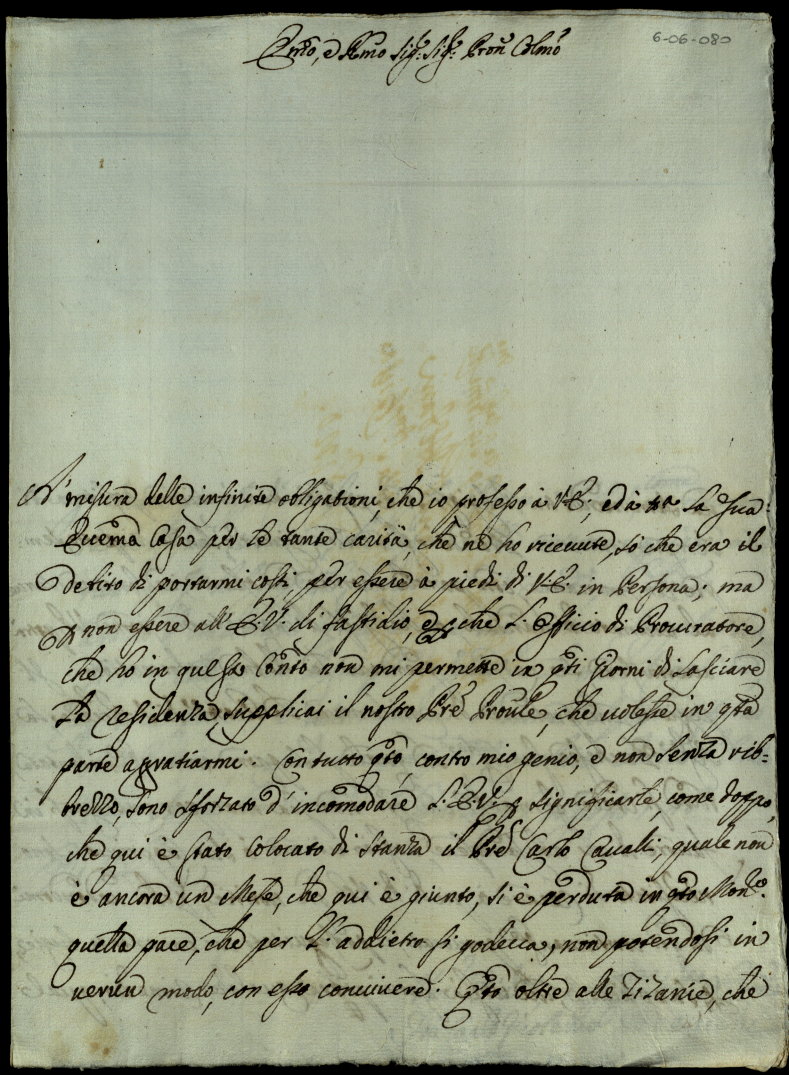 6-06-080
Emo, e Rmo Sigr. Sigr. Pron Colmo
A' misura delle infinite obligationi, che io professo à V.E., ed à tta la sua
Ecema Casa per le tante carità, che ne ho riceuute, si che era il
desirio di portarmi costi, per essere à piedi di V.E. in Persona; ma
p non essere all' E.V. di fastidio, e che L. officio di Procuratore,
che ho in questo Conto non mi permette in qti Giorni di lasciare
la residenza, supplicai il nostro Pre Proule, che uolesse in qta
parte agratiarmi. Con tutto qto, contro mio genio, e non senza rib=
brezzo, sono sforzato d' incomodare L.E.V. p significarle, come doppo,
che qui è stato colocato di stanza il Pre Carlo Caualli, quale non
è ancora un Mese, che qui è giunto, si è perduta in qto Monro.
quella pace, che per l' addietro si godeua, non potendosi in
uerun modo, con esso conuiuere. Qto oltre alle Zizanie, che